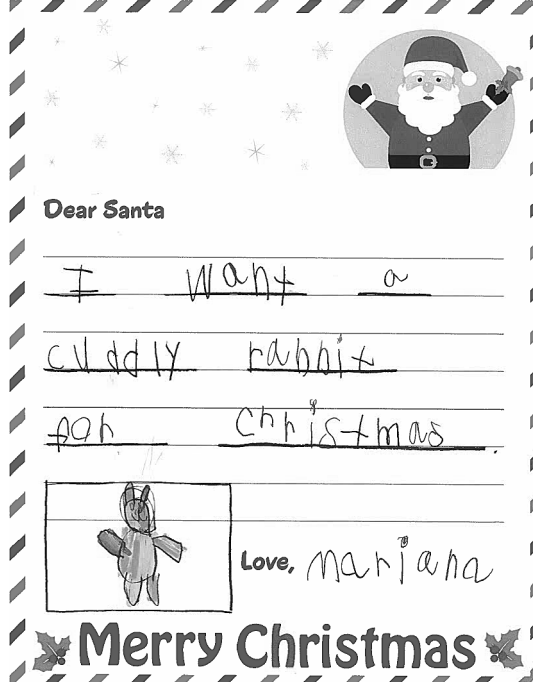 Dear Santa
I want a
cuddly rabbit
for christmas.
Love, mariana
Merry Christmas